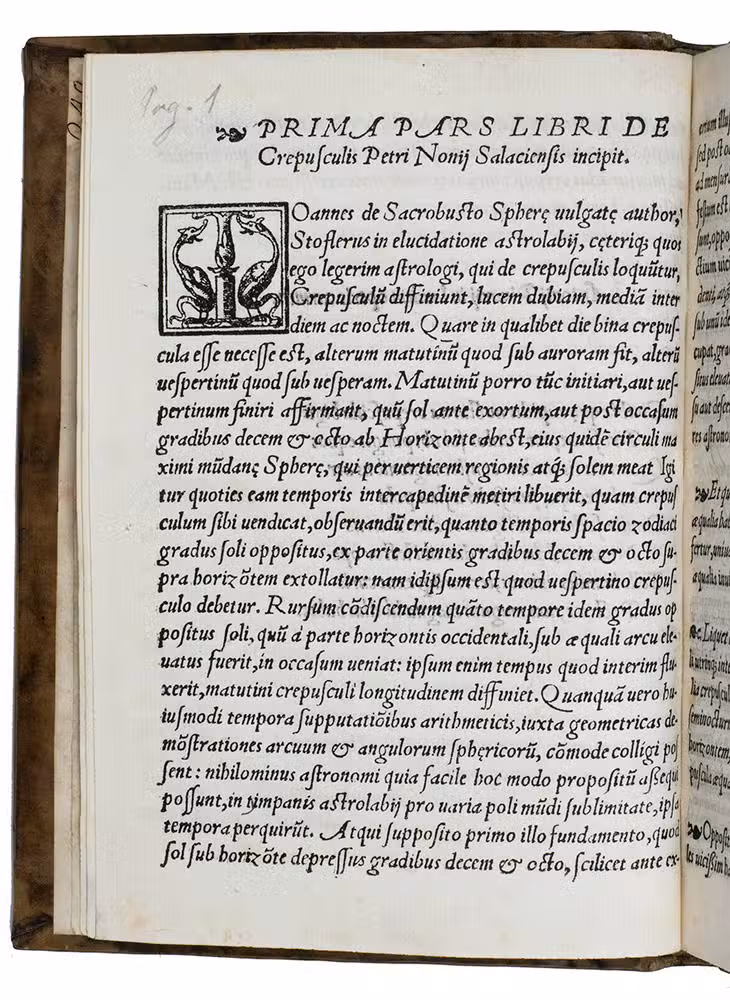 Pag. 1
PRIMA PARS LIBRI DE
Crepuſculis Petri Nonij Salacienſis incipit.
IOannes de Sacrobuſto Spherę uulgatę author,
Stoflerus in elucidatione aſtrolabij, cęteriq; quos
ego legerim aſtrologi, qui de crepuſculis loquūtur,
Crepuſculū diffiniunt, lucem dubiam, mediā inter
diem ac noctem. Quare in qualibet die bina crepuſ-
cula eſſe neceſſe eſt, alterum matutinū quod ſub auroram fit, alterū
ueſpertinū quod ſub ueſperam. Matutinū porro tūc initiari, aut ueſ-
pertinum finiri affirmant, quū ſol ante exortum, aut poſt occaſum
gradibus decem & octo ab Horizonte abeſt, eius quidē circuli ma
ximi mūdanę Spherę, qui per uerticem regionis atq; ſolem meat Igi
tur quoties eam temporis intercapedinē metiri libuerit, quam crepuſ
culum ſibi uendicat, obſeruandū erit, quanto temporis ſpacio zodiaci
gradus ſoli oppoſitus, ex parte orientis gradibus decem & octo ſu-
pra horizōtem extollatur: nam idipſum eſt quod ueſpertino crepuſ-
culo debetur. Rurſum cōdiſcendum quāto tempore idem gradus op
poſitus ſoli, quū à parte horizontis occidentali, ſub æquali arcu ele-
uatus fuerit, in occaſum ueniat: ipſum enim tempus quod interim flu-
xerit, matutini crepuſculi longitudinem diffiniet. Quanquā uero hu-
iuſmodi tempora ſupputatiōibus arithmeticis, iuxta geometricas de-
mōſtrationes arcuum & angulorum ſphericorū, cōmode colligi poſ
ſent: nihilominus aſtronomi quia facile hoc modo propoſitū aſſequi
poſſunt, in tympanis aſtrolabij pro uaria poli mūdi ſublimitate, ipſa
tempora perquirūt. Atqui ſuppoſito primo illo fundamento, quod
ſol ſub horizōte depreſſus gradibus decem & octo, ſcilicet ante ex-